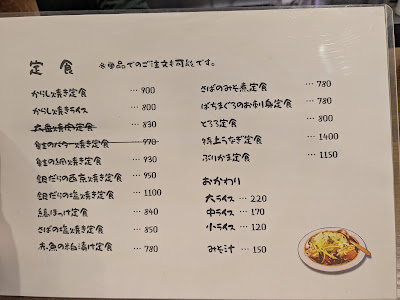 定食 ※単品でのご注文も可能です。
からし焼き定食 … 900
からし焼きライス … 800
… 830
鮭のバター焼き定食 … 970
鮭の網焼き定食 … 930
銀だらの西京焼き定食 … 950
銀だらの塩焼き定食 … 1100
縞ほっけ定食 … 840
さばの塩焼き定食 … 850
赤魚の粕漬け定食 … 780
さばのみそ煮定食 … 780
ばちまぐろのお刺身定食 … 780
とろろ定食 … 800
特上うなぎ定食 … 1400
ぶりかま定食 … 1150
おかわり
大ライス … 220
中ライス … 170
小ライス … 120
みそ汁 … 150